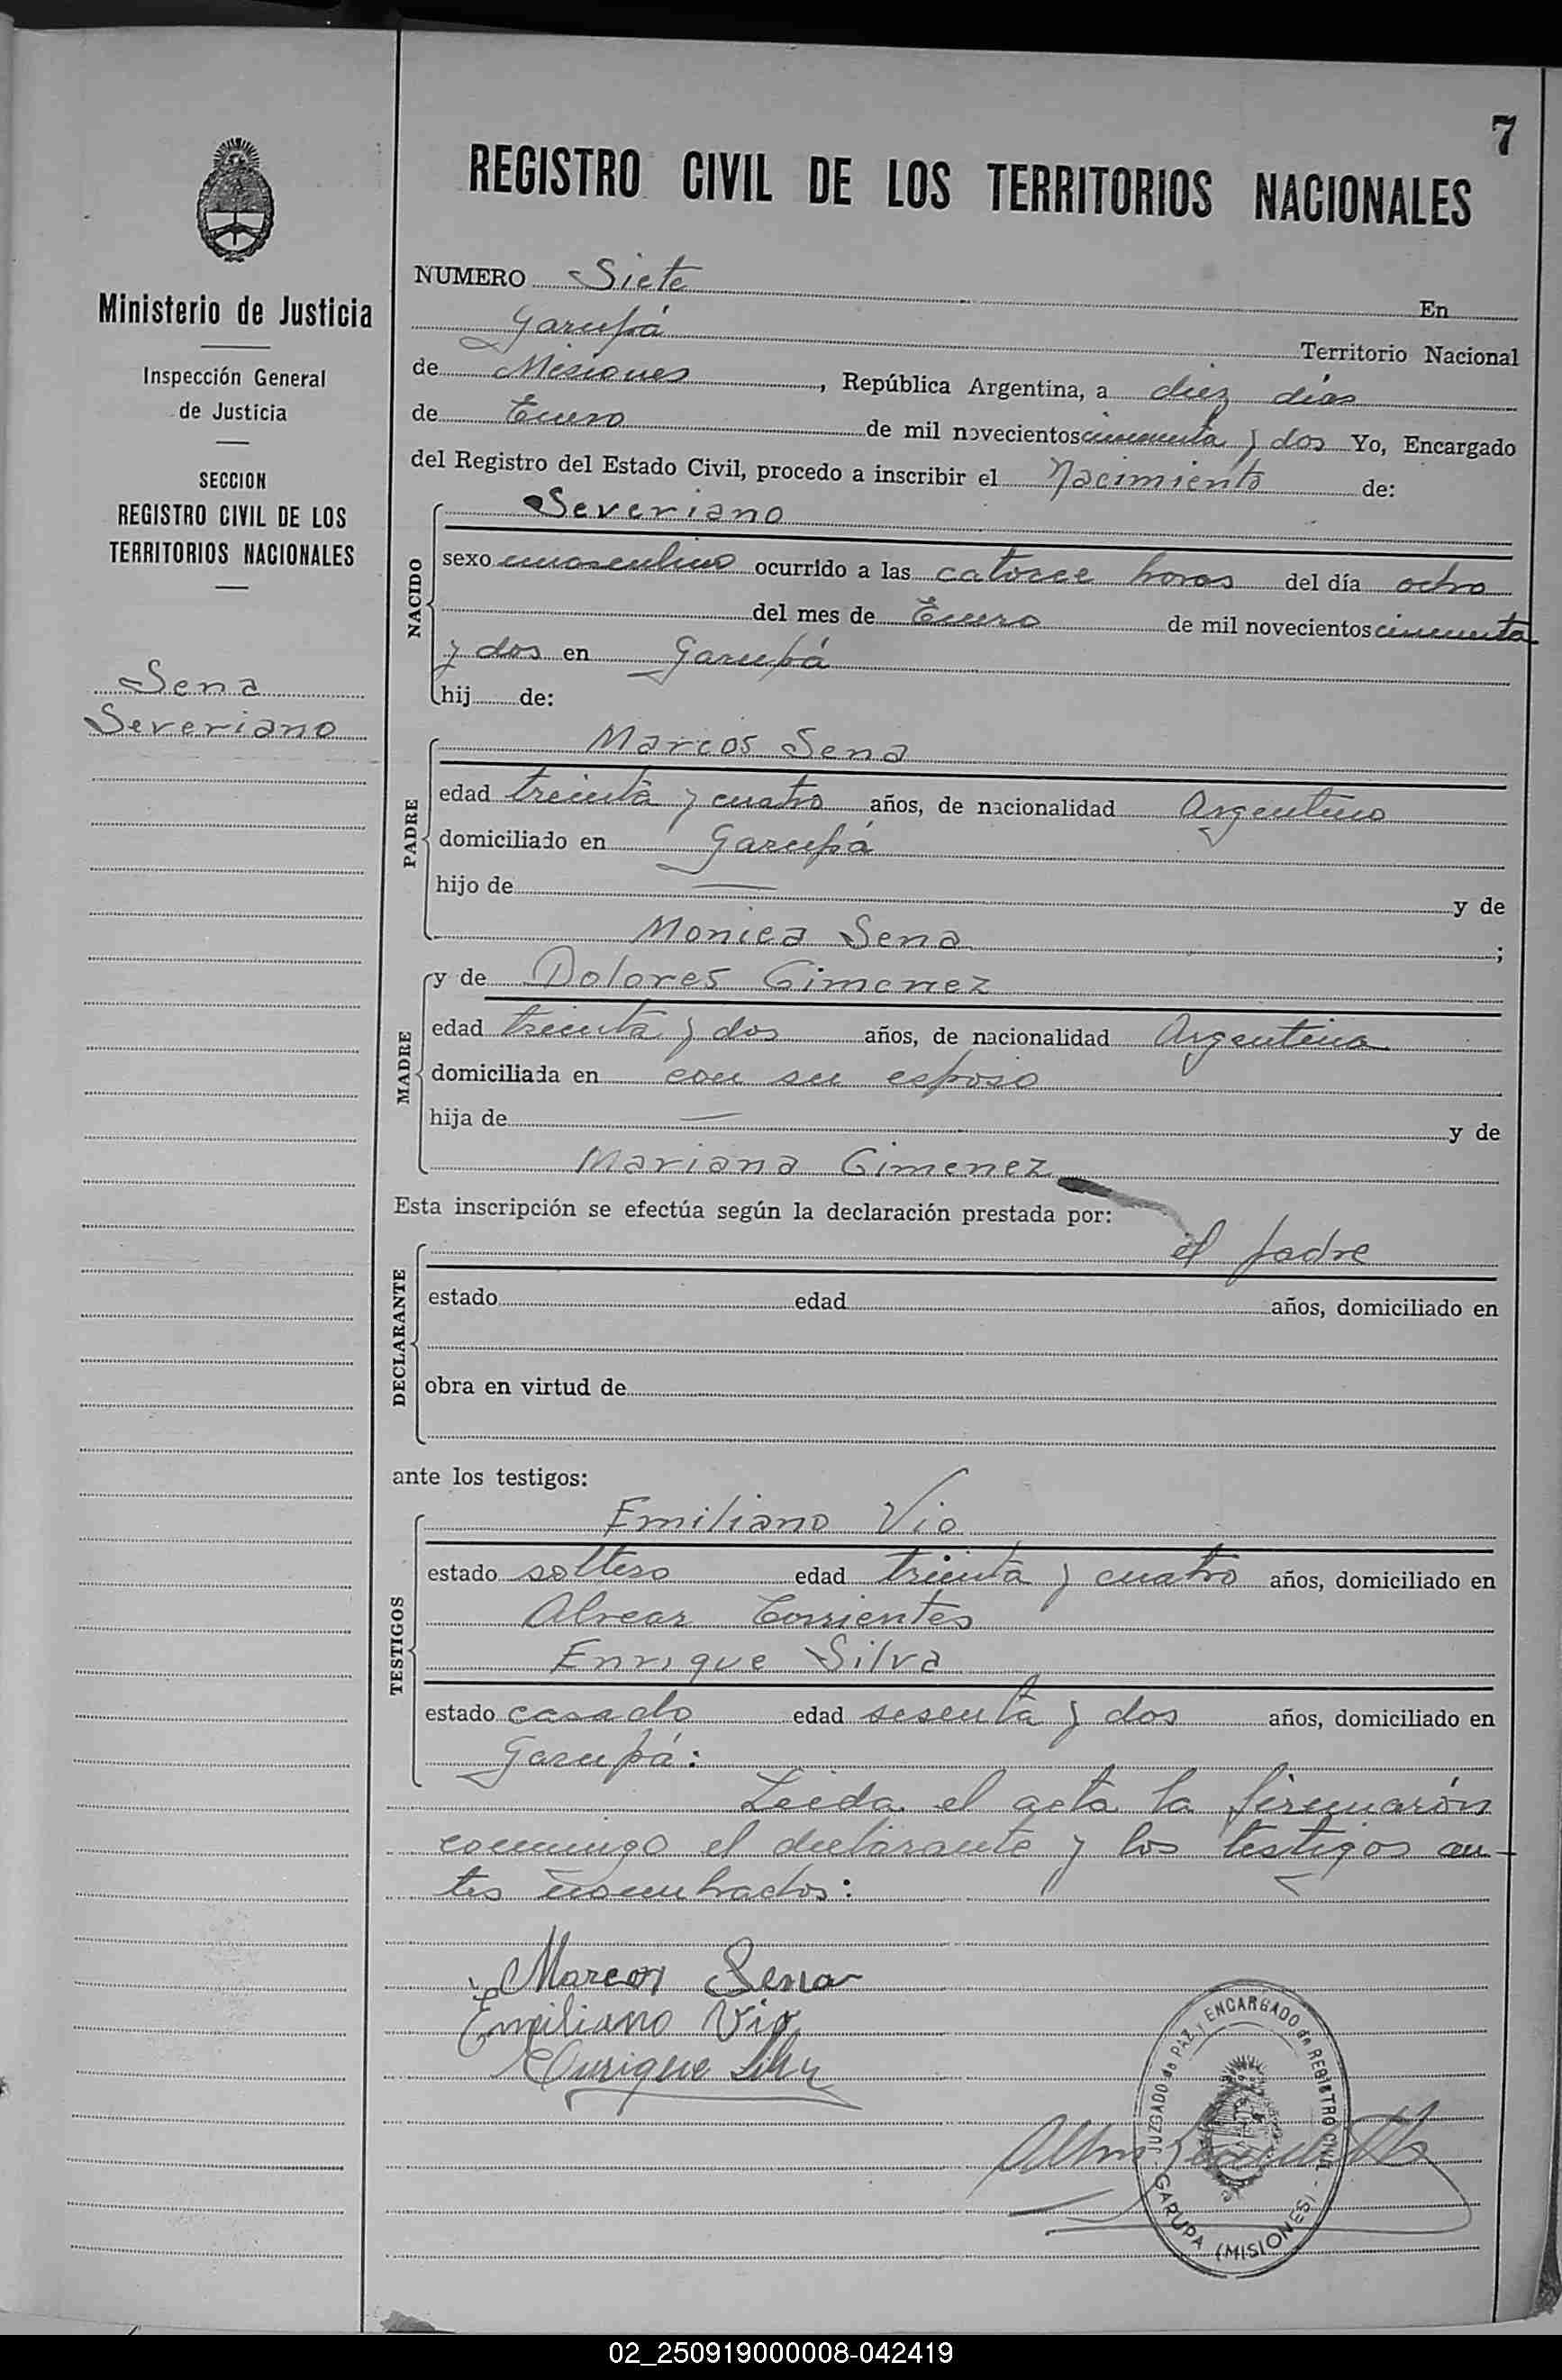 7
REGISTRO CIVIL DE LOS TERRITORIOS NACIONALES
Ministerio de Justicia
Inspección General
de Justicia
SECCION
REGISTRO CIVIL DE LOS
TERRITORIOS NACIONALES
Sena
Severiano
NUMERO Siete En
Garupá Territorio Nacional
de Misiones, República Argentina, a diez días
de Enero de mil novecientos cincuenta y dos Yo, Encargado
del Registro del Estado Civil, procedo a inscribir el Nacimiento de:
NACIDO
Severiano
sexo masculino ocurrido a las catorce horas del día ocho
del mes de Enero de mil novecientos cincuenta
y dos en Garupá
hij de:
PADRE
Marcos Sena
edad treinta y cuatro años, de nacionalidad Argentino
domiciliado en Garupá
hijo de — y de
Monica Sena ;
MADRE
y de Dolores Gimenez
edad treinta y dos años, de nacionalidad Argentina
domiciliada en con su esposo
hija de — y de
Mariana Gimenez
Esta inscripción se efectúa según la declaración prestada por:
DECLARANTE
el padre
estado edad años, domiciliado en
obra en virtud de
ante los testigos:
TESTIGOS
Emiliano Vio
estado soltero edad treinta y cuatro años, domiciliado en
Alvear Corrientes
Enrique Silva
estado casado edad sesenta y dos años, domiciliado en
Garupá:
Leida el acta la firmarón
conmingo el declarante y los testigos an-
tes nombrados:
Marcos Sena
Emiliano Vio
Enrique Silva
JUZGADO de PAZ y ENCARGADO de REGISTRO CIVIL - GARUPA (MISIONES) -
02_250919000008-042419